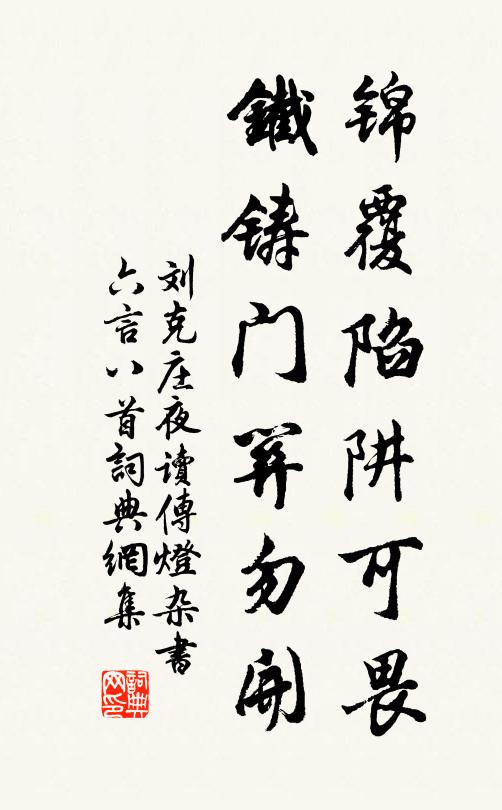 锦覆陷阱可畏
鐵铸门勿開
刘克庄夜讀傳燈杂書
六言八首詞典網集
詞典网印